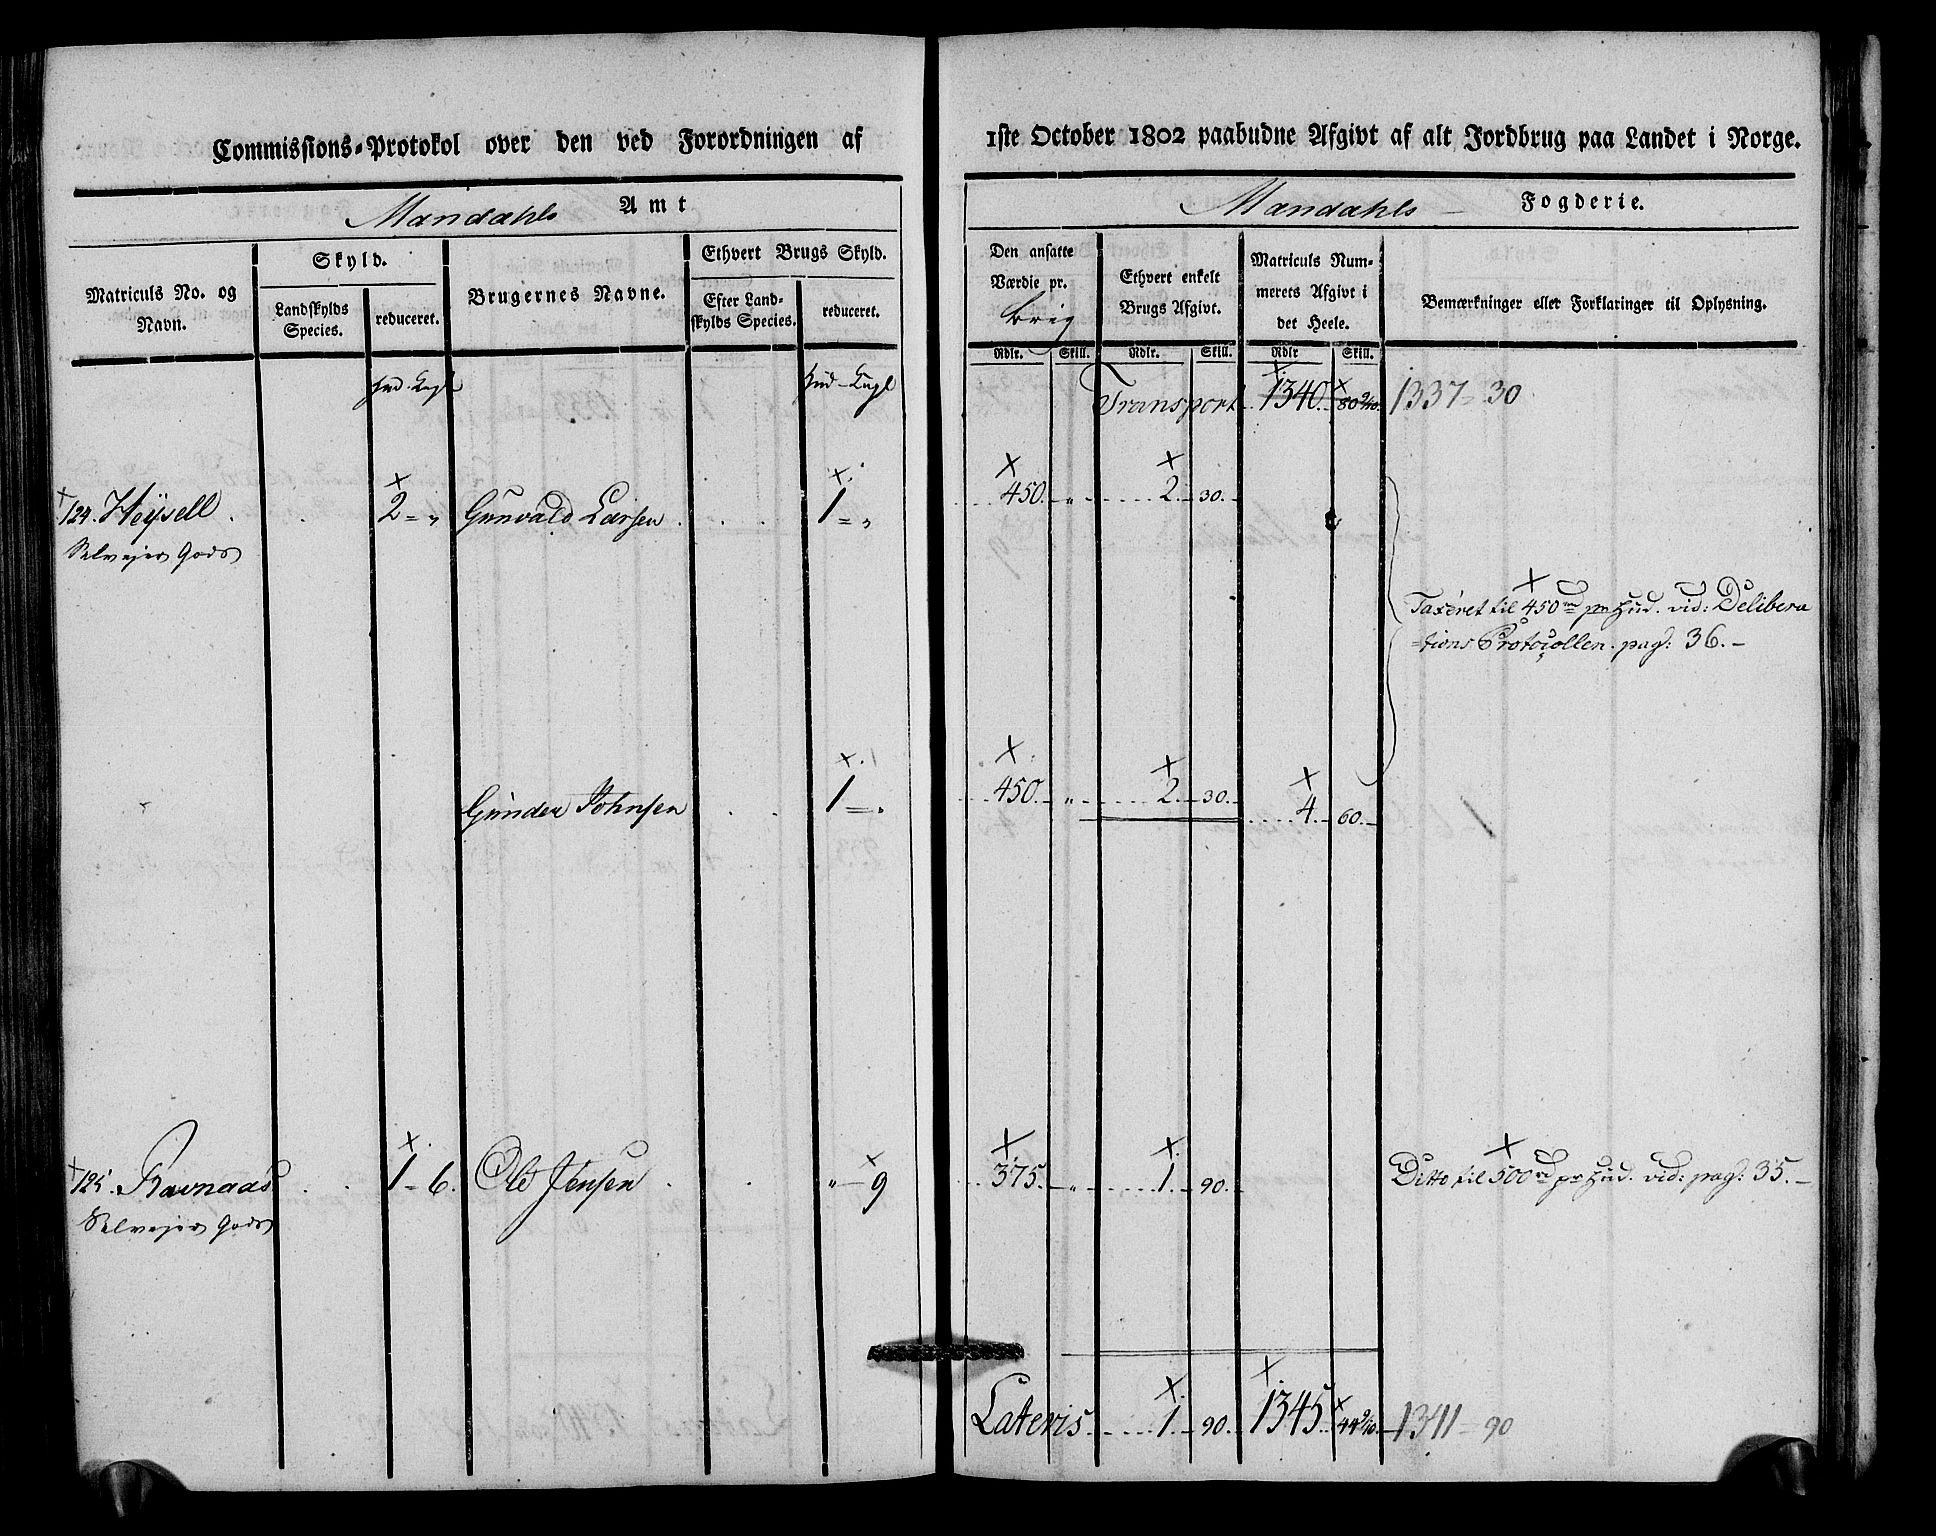 Commissions-Protokol over den ved Forordningen af 1ste October 1802 paabudne Afgivt af alt Jordbrug paa Landet i Norge.
Mandahls Amt
Mandahls Fogderie.
Matriculs No. og Navn.
Skyld.
Landskylds Species.
reduceret.
Brugernes Navne.
Ethvert Brugs Skyld.
Efter Landskylds Species.
reduceret.
Den ansatte Værdie pr. brug
Ethvert enkelt Brugs Afgivt.
Matriculs Nummerets Afgivt i det Heele.
Bemærkninger eller Forklaringer til Oplysning.
Rdlr. Skill. Rdlr. Skill. Rdlr Skill.
Hud. Engl Hud - Engl
Transport 1340. 1337 = 30
124. Heÿsell 2 = „ Gunvald Larsen 1 = „ 450. „ 2. 30.
Selveier Gods
Taxeret til 450 rd pr Hud. vid: Delibera
=tions Protocollen. pag: 36.
Gunder Johnsen 1 = „ 450. „ 2. 30. 4. 60.
125. Ravnaas 1 - 6. Ole Jensen „ - 9 375. „ 1. 90. Ditto til 500 rd pr Hud. vid: pag: 35.
Selveier Gods
Lateris 1. 90. 1345. 1341 = 90